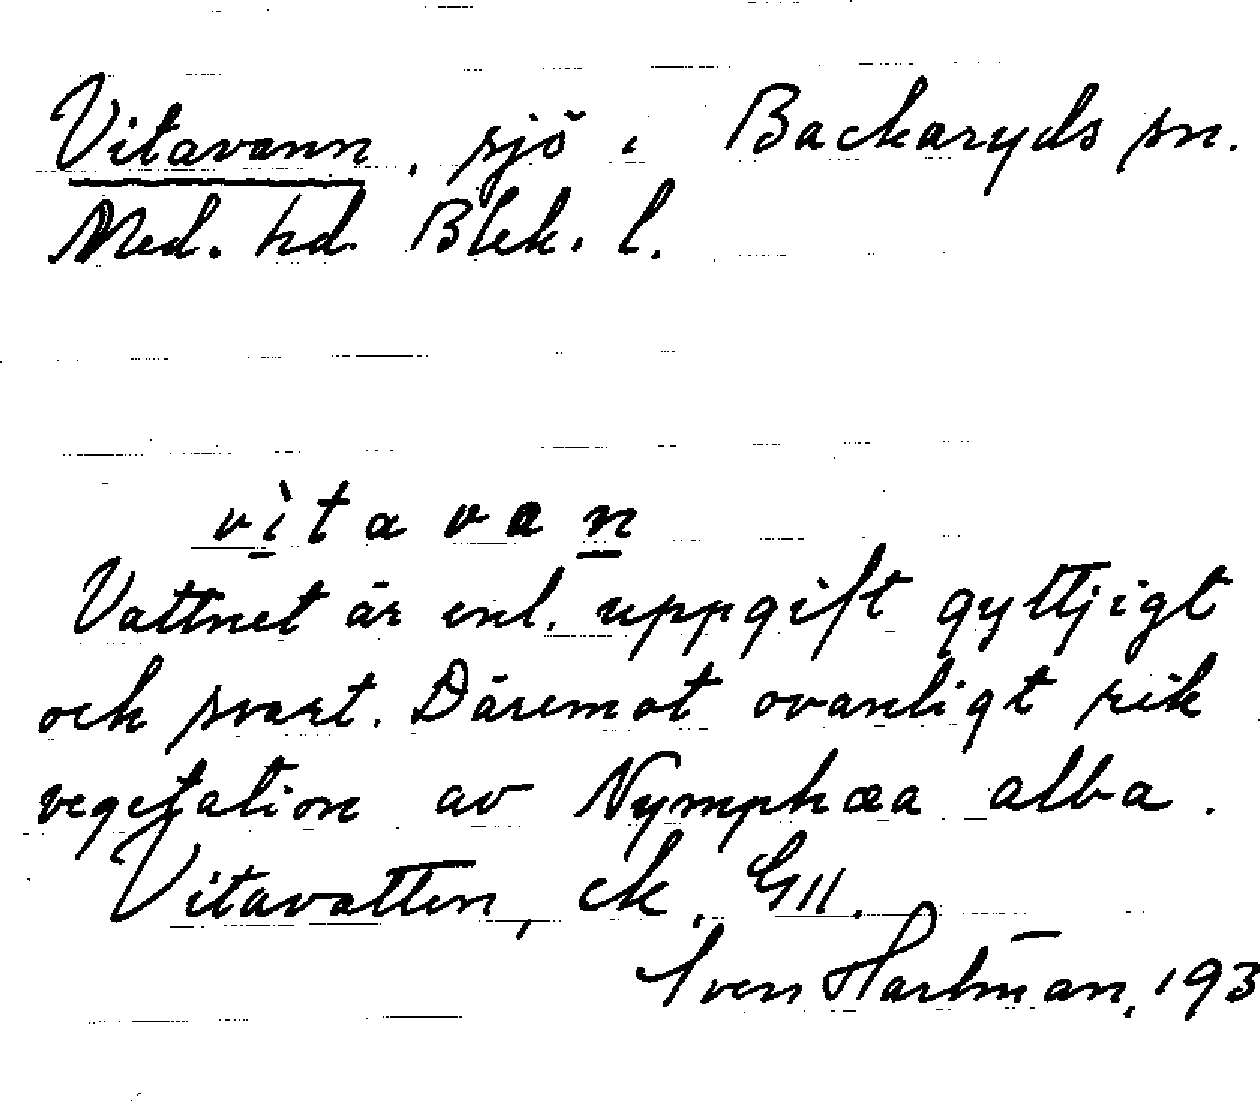 Vitavann, sjö i Backaryds sn.
Med. hd Blek. l.
vìtavan
Vattnet är enl. uppgift gyttjigt
och svart. Däremot ovanligt rik
vegetation av Nymphæa alba.
Vitavatten, ek. G11.
Sven Hartman, 193